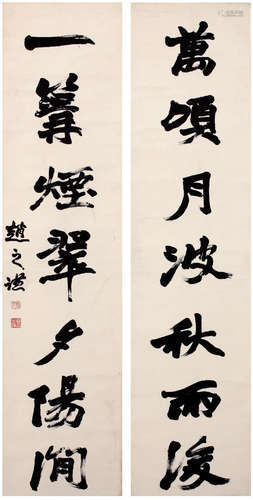 萬頃月波秋雨後
一篙煙翠夕陽間
趙之謙